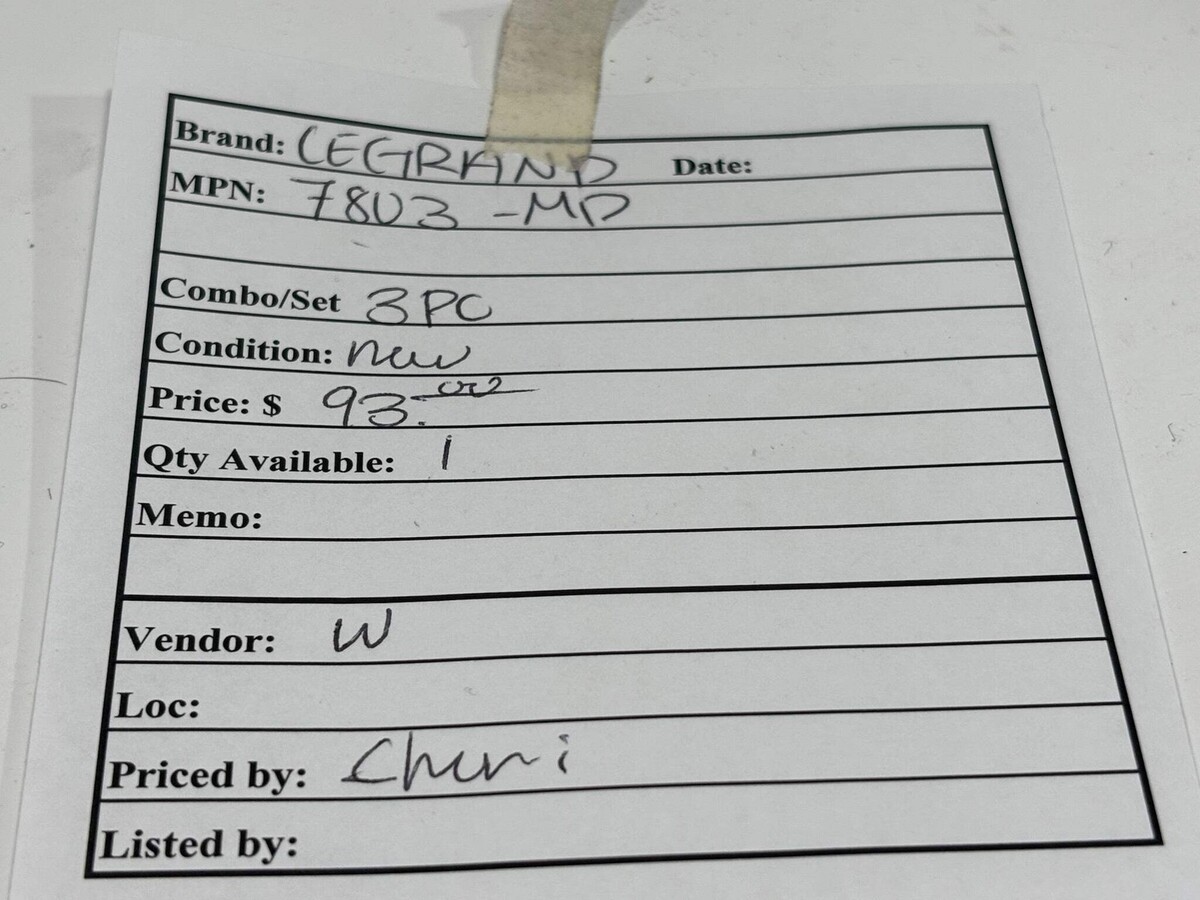 Brand: LEGRAND Date:
MPN: 7803 -MD
Combo/Set 3PC
Condition: new
Price: $ 93.00
Qty Available: 1
Memo:
Vendor: W
Loc:
Priced by: Cheri
Listed by: